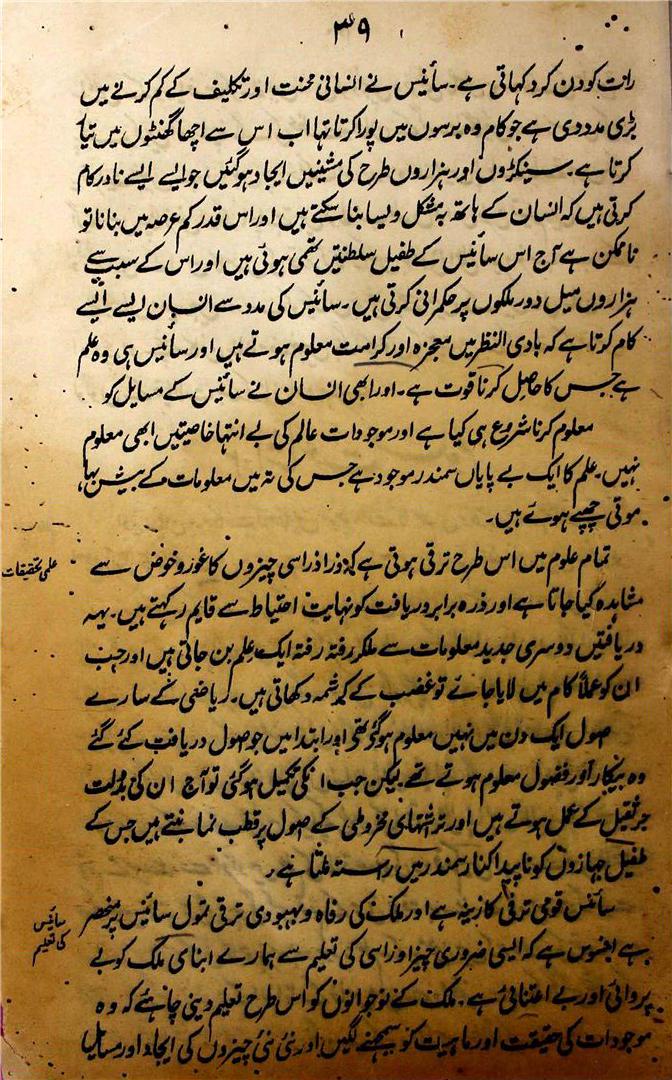 ۳۹
رات کو دن کر دکہاتی ہے۔ سائنس نے انسانی محنت اور تکلیف کے کم کرنے میں
بڑی مدد دی ہے جو کام وہ برسوں میں پورا کرتا تہا اب اس سے اچھا گھنٹوں میں تیا
کرتا ہے۔ سینکڑوں اور ہزاروں طرح کی مشینیں ایجاد ہوگئیں جو ایسے ایسے نادر کام
کرتی ہیں کہ انسان کے ہاتھ بہ مشکل ویسا بنا سکتے ہیں اور اس قدر کم عرصہ میں بنانا تو
ناممکن ہے آج اس سائنس کے طفیل سلطنتیں تھمی ہوئی ہیں اور اس کے سبب سے
ہزاروں میل دور ملکوں پر حکمرانی کرتی ہیں۔ سائنس کی مدد سے انسان ایسے ایسے
کام کرتا ہے کہ بادی النظر میں معجزہ اور کرامت معلوم ہوتے ہیں اور سائنس ہی وہ علم
ہے جس کا حاصل کرنا قوت ہے۔ اور ابھی انسان نے سائنس کے مسایل کو
معلوم کرنا شروع ہی کیا ہے اور موجودات عالم کی بے انتہا خاصیتیں ابھی معلوم
نہیں۔ علم کا ایک بے پایاں سمندر موجود ہے جس کی تہ میں معلومات کے بیش بہا
موتی چھپے ہوئے ہیں۔
علمی تحقیقات
تمام علوم میں اس طرح ترقی ہوتی ہے کہ ذرا ذراسی چیزوں کا غور و خوض سے
مشاہدہ کیا جاتا ہے اور ذرہ برابر دریافت کو نہایت احتیاط سے قایم رکہتے ہیں۔ یہہ
دریافتیں دوسری جدید معلومات سے ملکر رفتہ رفتہ ایک علم بن جاتی ہیں اور جب
ان کو عملاً کام میں لایا جائے تو غضب کے کرشمہ دکھاتی ہیں۔ ریاضی کے سارے
صول ایک دن میں نہیں معلوم ہوگئے تھے اور ابتدا میں جو صول دریافت کئے گئے
وہ بیکار اور فضول معلوم ہوتے تھے لیکن جب انکی تکمیل ہوگئی تو آج ان کی بدولت
جرثقیل کے عمل ہوتے ہیں اور تراشہای مخروطی کے صول پر قطب نما بنتے ہیں جس کے
طفیل جہازوں کو ناپیدا کنار سمندر میں رستہ ملتا ہے۔
سائنس کی تعلیم
سائنس قومی ترقی کا زینہ ہے اور ملک کی رفاہ و بہبودی ترقی تمول سائنس پر منحصر
ہے افسوس ہے کہ ایسی ضروری چیز اور اسی کی تعلیم سے ہمارے ابنای ملک کو بے
پروائی اور بے اعتنائی ہے۔ ملک کے نوجوانوں کو اس طرح تعلیم دینی چاہئے کہ وہ
موجودات کی حقیقت اور ماہیت کو سمجھنے لگیں اور نئی نئی چیزوں کی ایجاد اور مسایل